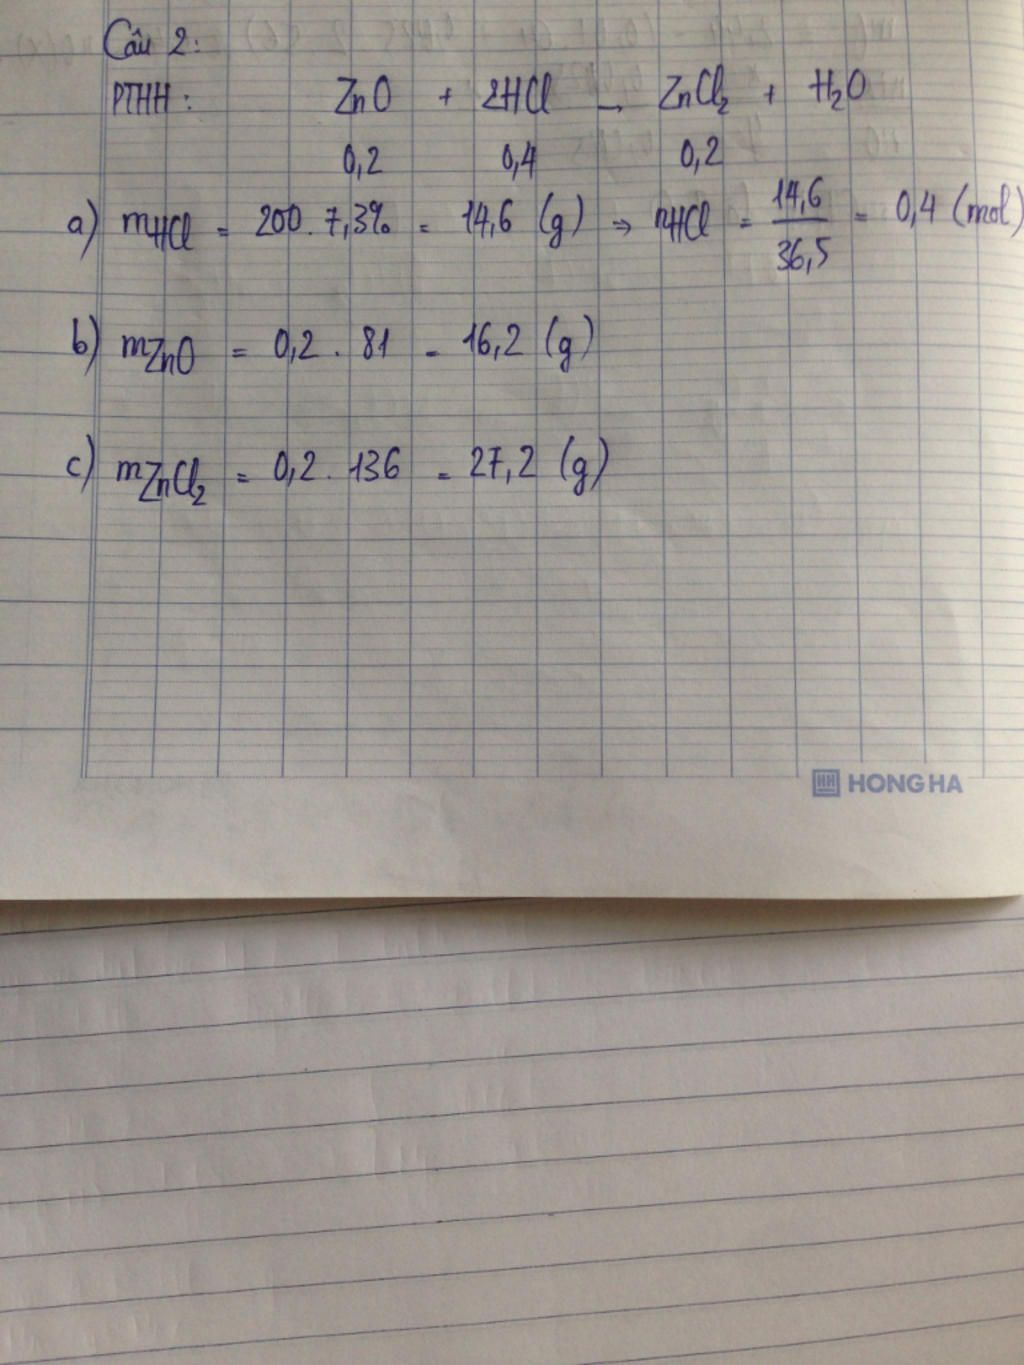 Câu 2:
PTHH: ZnO + 2HCl → ZnCl₂ + H₂O
0,2 0,4 0,2
a) mHCl = 200. 7,3% = 14,6 (g) → nHCl = 14,6/36,5 = 0,4 (mol)
b) mZnO = 0,2 . 81 = 16,2 (g)
c) mZnCl₂ = 0,2. 136 = 27,2 (g)
HH HONG HA